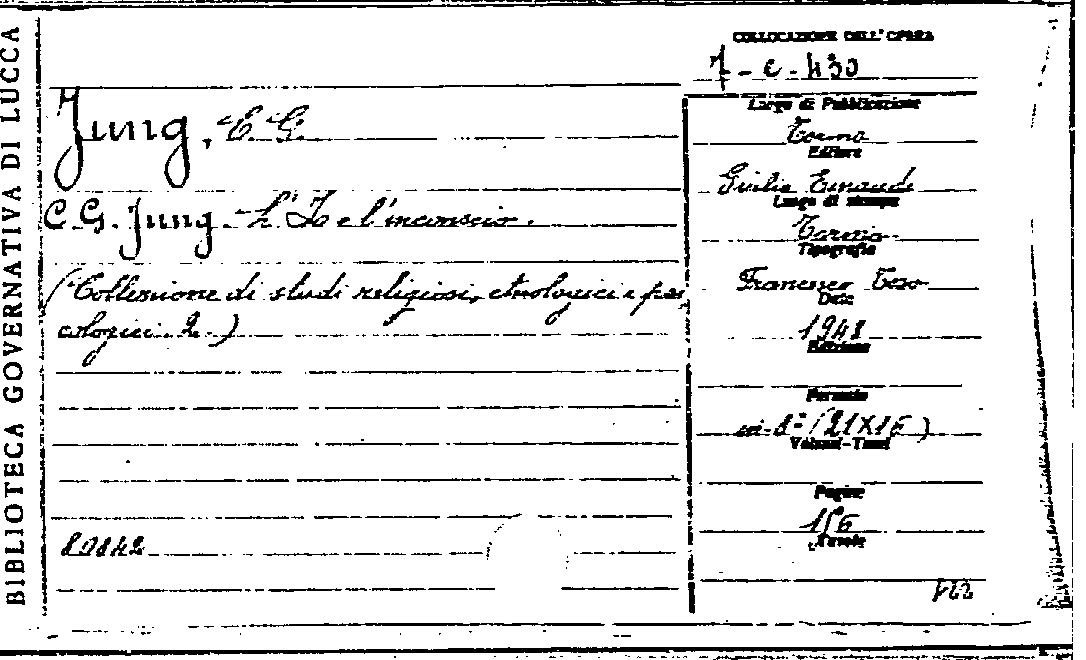 BIBLIOTECA GOVERNATIVA DI LUCCA
COLLOCAZIONE DELL'OPERA
7-c-430
Jung, C. G.
C. G. Jung - L'Io e l'inconscio.
(Collezione di studi religiosi, etnologici e psi,
cologici. 2.)
80842
Luogo di Pubblicazione
Torino
Editore
Giulio Einaudi
Luogo di stampa
Torino
Tipografia
Francesco Toso
Data
1948
Edizione
Formato
in-8° (21X16)
Volumi-Tomi
Pagine
156
Tavole